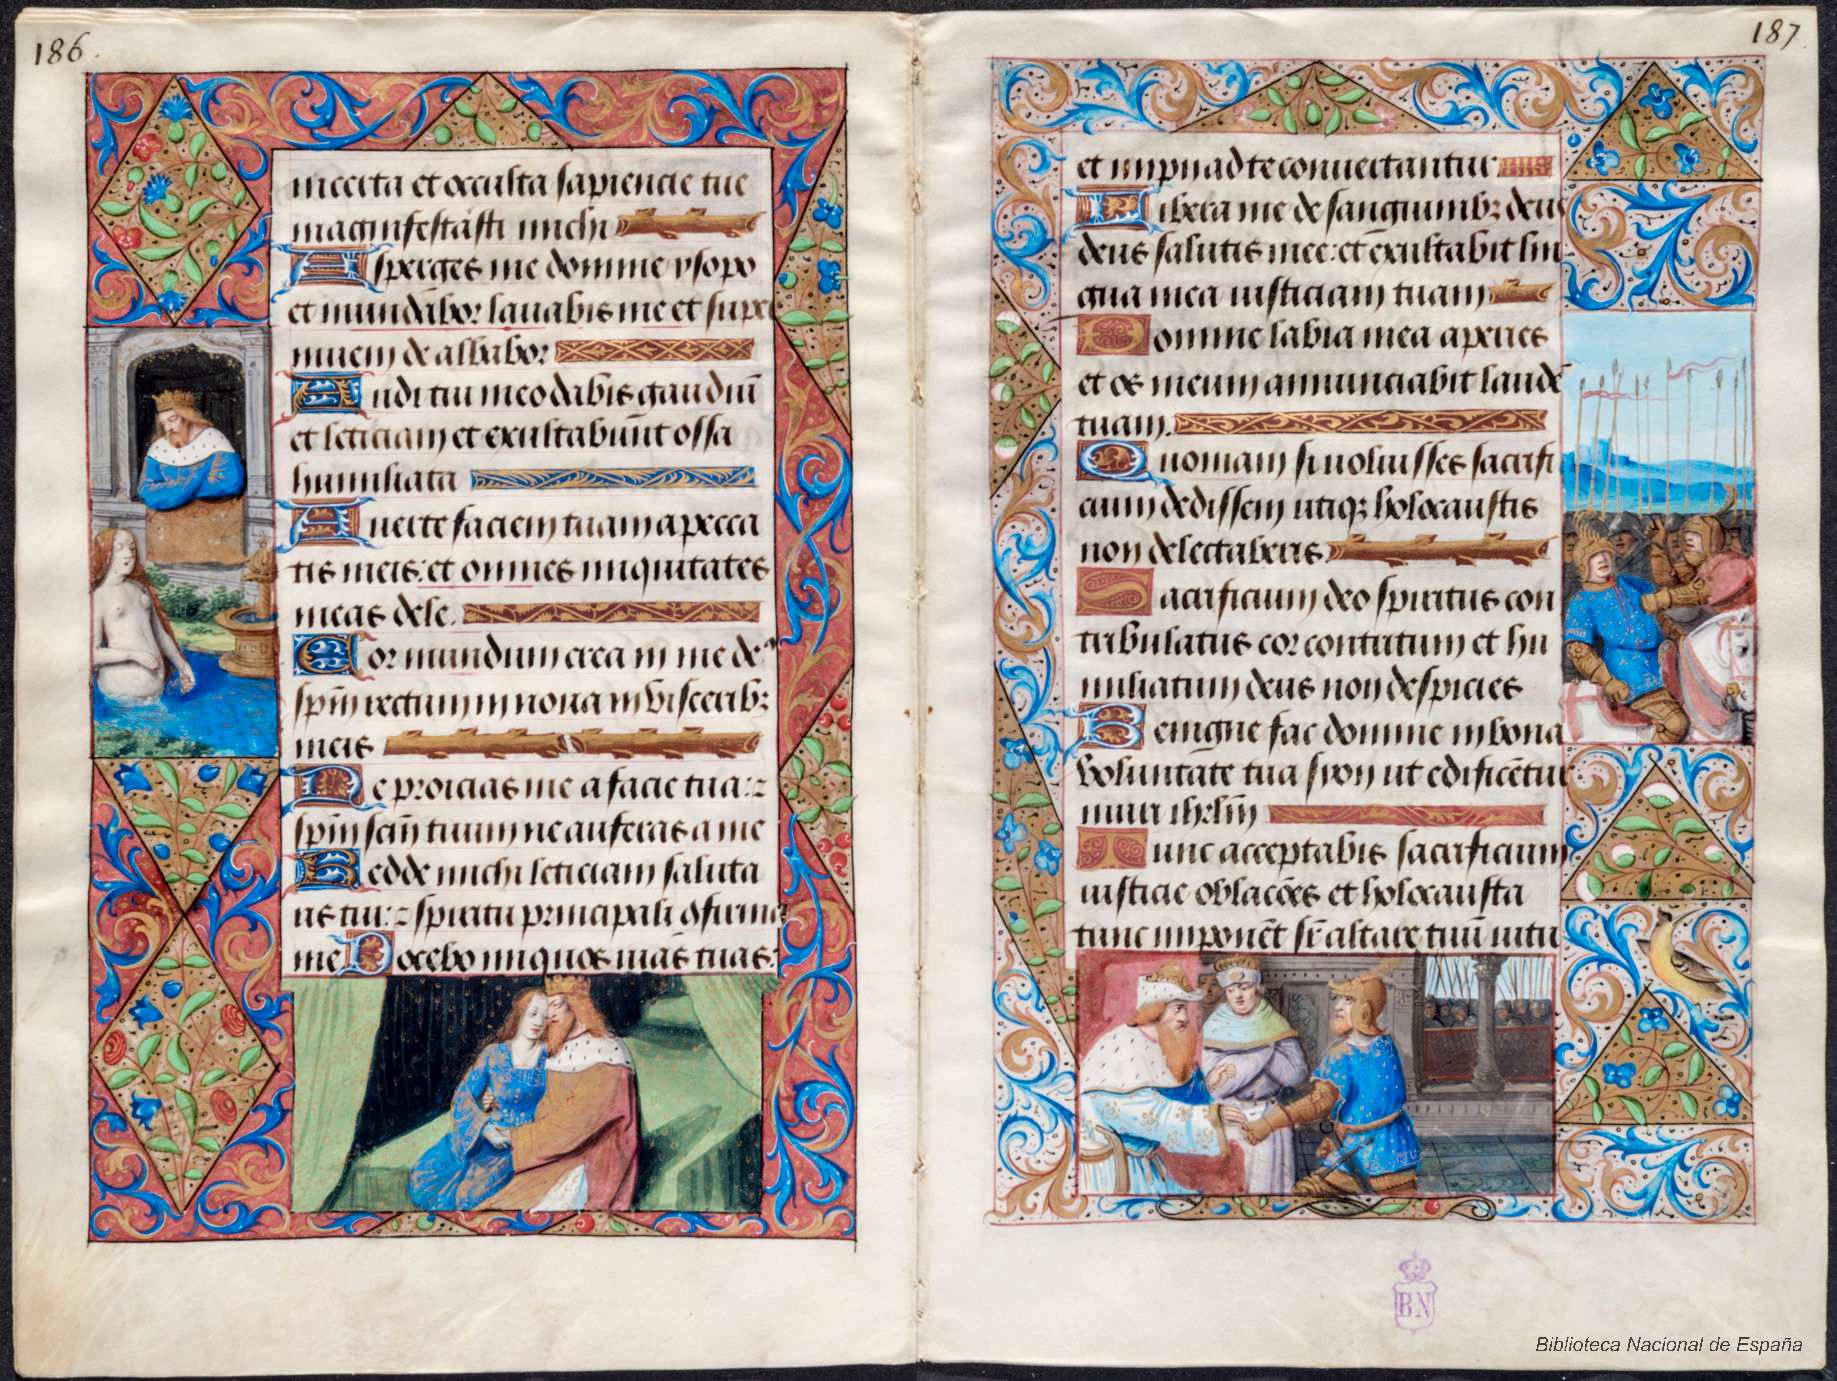 186.
incerta et occulta sapiencie tue
magnifestasti michi
Asperges me domine ysopo
et mundabor lauabis me et super
niuem de albabor
Auditui meo dabis gaudiū
et leticiam et exultabūnt ossa
humiliata
Auerte faciem tuam a pecca
tis meis: et omnes iniquitates
meas dele.
Cor mundum crea in me de⁹
spm̄ rectum in noua in viscerib⁊
meis
Ne proicias me a facie tua: ⁊
spm̄ scm̄ tuum ne auferas a me
Redde michi leticiam saluta
ris tui: ⁊ spiritu principali ꝯfirma
me Docebo iniquos uias tuas:
187.
et impii ad te conuertantur
Libera me de sanguinib⁊ deus
deus salutis mee: et exultabit lin
gua mea iusticiam tuam
Domine labia mea aperies
et os meum annunciabit laudē
tuam.
Quoniam si uoluisses sacrifi
cium dedissem utiq⁊ holocaustis
non delectaberis
Sacrificium deo spiritus con
tribulatus cor contritum et hu
miliatum deus non despicies
Benigne fac domine in bona
voluntate tua sion ut edificētur
muri ihrlm̄
Tunc acceptabis sacrificium
iusticie oblacōes et holocausta
tunc imponēt sr̄ altare tuū uitu
BN
Biblioteca Nacional de España